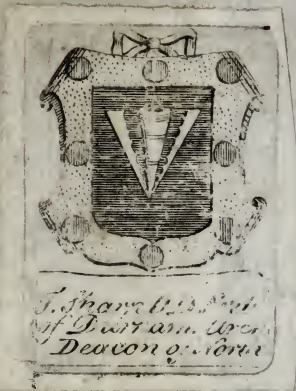 T. Sharp D.D. Preb.
of Durham. Arch
Deacon of North